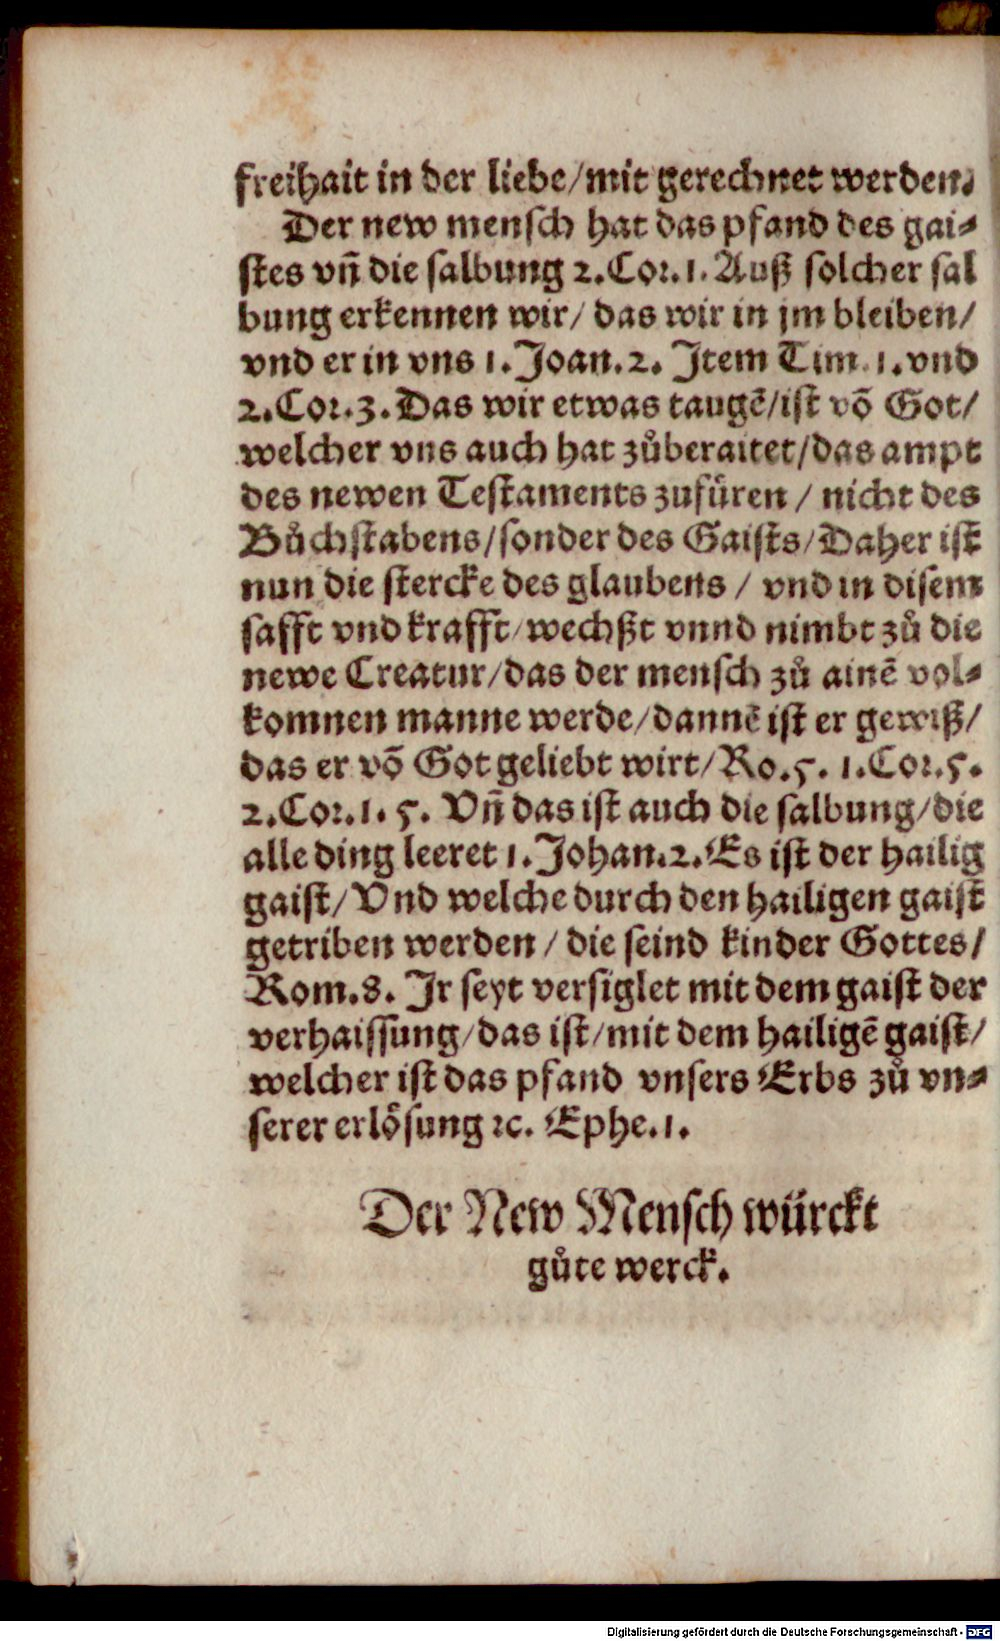 freihait in der liebe/mit gerechnet werden.
Der new mensch hat das pfand des gai⸗
stes vñ die salbung 2.Cor.1. Auß solcher sal
bung erkennen wir/ das wir in jm bleiben/
vnd er in vns 1. Joan.2. Item Tim. 1.vnd
2.Cor.3. Das wir etwas taugẽ/ist võ Got/
welcher vns auch hat zůberaitet/das ampt
des newen Testaments zufüren / nicht des
Bůchstabens/sonder des Gaists/Daher ist
nun die stercke des glaubens / vnd in disem
safft vnd krafft/wechßt vnnd nimbt zů die
newe Creatur/das der mensch zů ainẽ vol⸗
komnen manne werde/dannẽ ist er gewiß/
das er võ Got geliebt wirt/Ro.5. 1.Cor.5.
2.Cor.1.5. Vñ das ist auch die salbung/die
alle ding leeret 1.Johan.2.Es ist der hailig
gaist/Vnd welche durch den hailigen gaist
getriben werden / die seind kinder Gottes/
Rom.8. Ir seyt versiglet mit dem gaist der
verhaissung/das ist/mit dem hailigẽ gaist/
welcher ist das pfand vnsers Erbs zů vn⸗
serer erlösung ꝛc. Ephe.1.
Der New Mensch würckt
gůte werck.
Digitalisierung gefördert durch die Deutsche Forschungsgemeinschaft - DFG